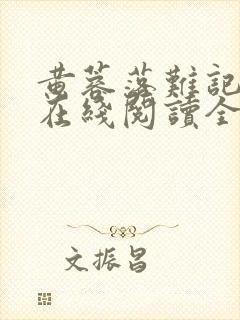 黄蓉落難記
在綫閱讀全
文振昌